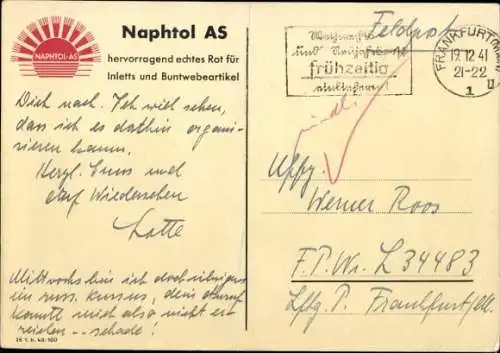 Naphtol AS
NAPHTOL-AS
hervorragend echtes Rot für
Inletts und Buntwebeartikel
Dich nach. Ich will sehen,
dass ich es dorthin organi-
sieren kann.
Herzl. Gruss und
auf Wiedersehen
Lotte
Mittwochs bin ich doch übrigens
im russ. Kursus, dein Anruf
konnte mich also nicht er-
reichen – schade!
Feldpost
und Neujahrspost
frühzeitig
einliefern!
FRANKFURT (MAIN)
19.12.41
21-22
1
Uffz.
Werner Roos
F.P.Nr. L 34483
Lftg. P. Frankfurt/M.